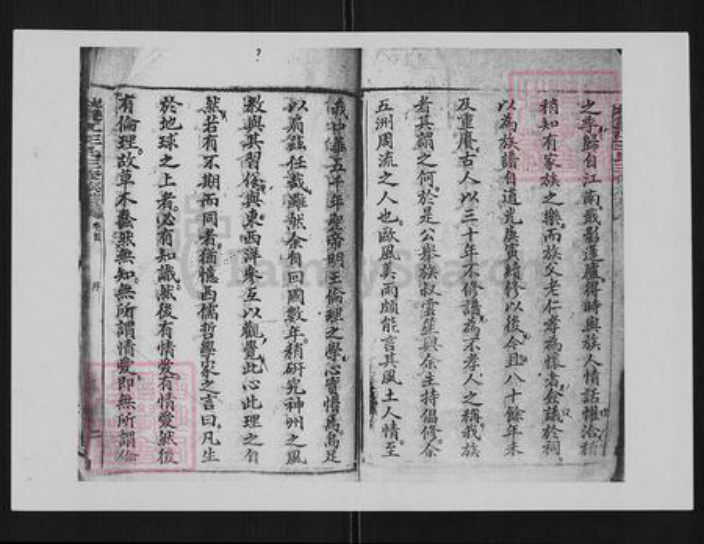 之亭歸自江南戢影蓬廬得時與族人情話懽洽
稍知有家族之樂而族父老仁等為族者僉議於祠
以為族譜自道光庚寅續修以後今且八十餘年未
及重賡古人以三十年不修譜為不孝人之稱我族
者其謂之何於是公舉族叔雲笙與余主持倡修余
五洲周流之人也歐風美雨頗能言其風土人情至
我中華五千年聖帝明王倫理之學心實懵焉烏足
以肩茲任哉雖然余自回國數年稍研究神州之風
教與其習俗與東西洋參互以觀覺此心此理之自
然若有不期而同者猶憶西儒哲學家之言曰凡生
於地球之上者必有知識然後有情愛有情愛然後
有倫理故草木蠢然無知無所謂情愛即無所謂倫
卷首 序